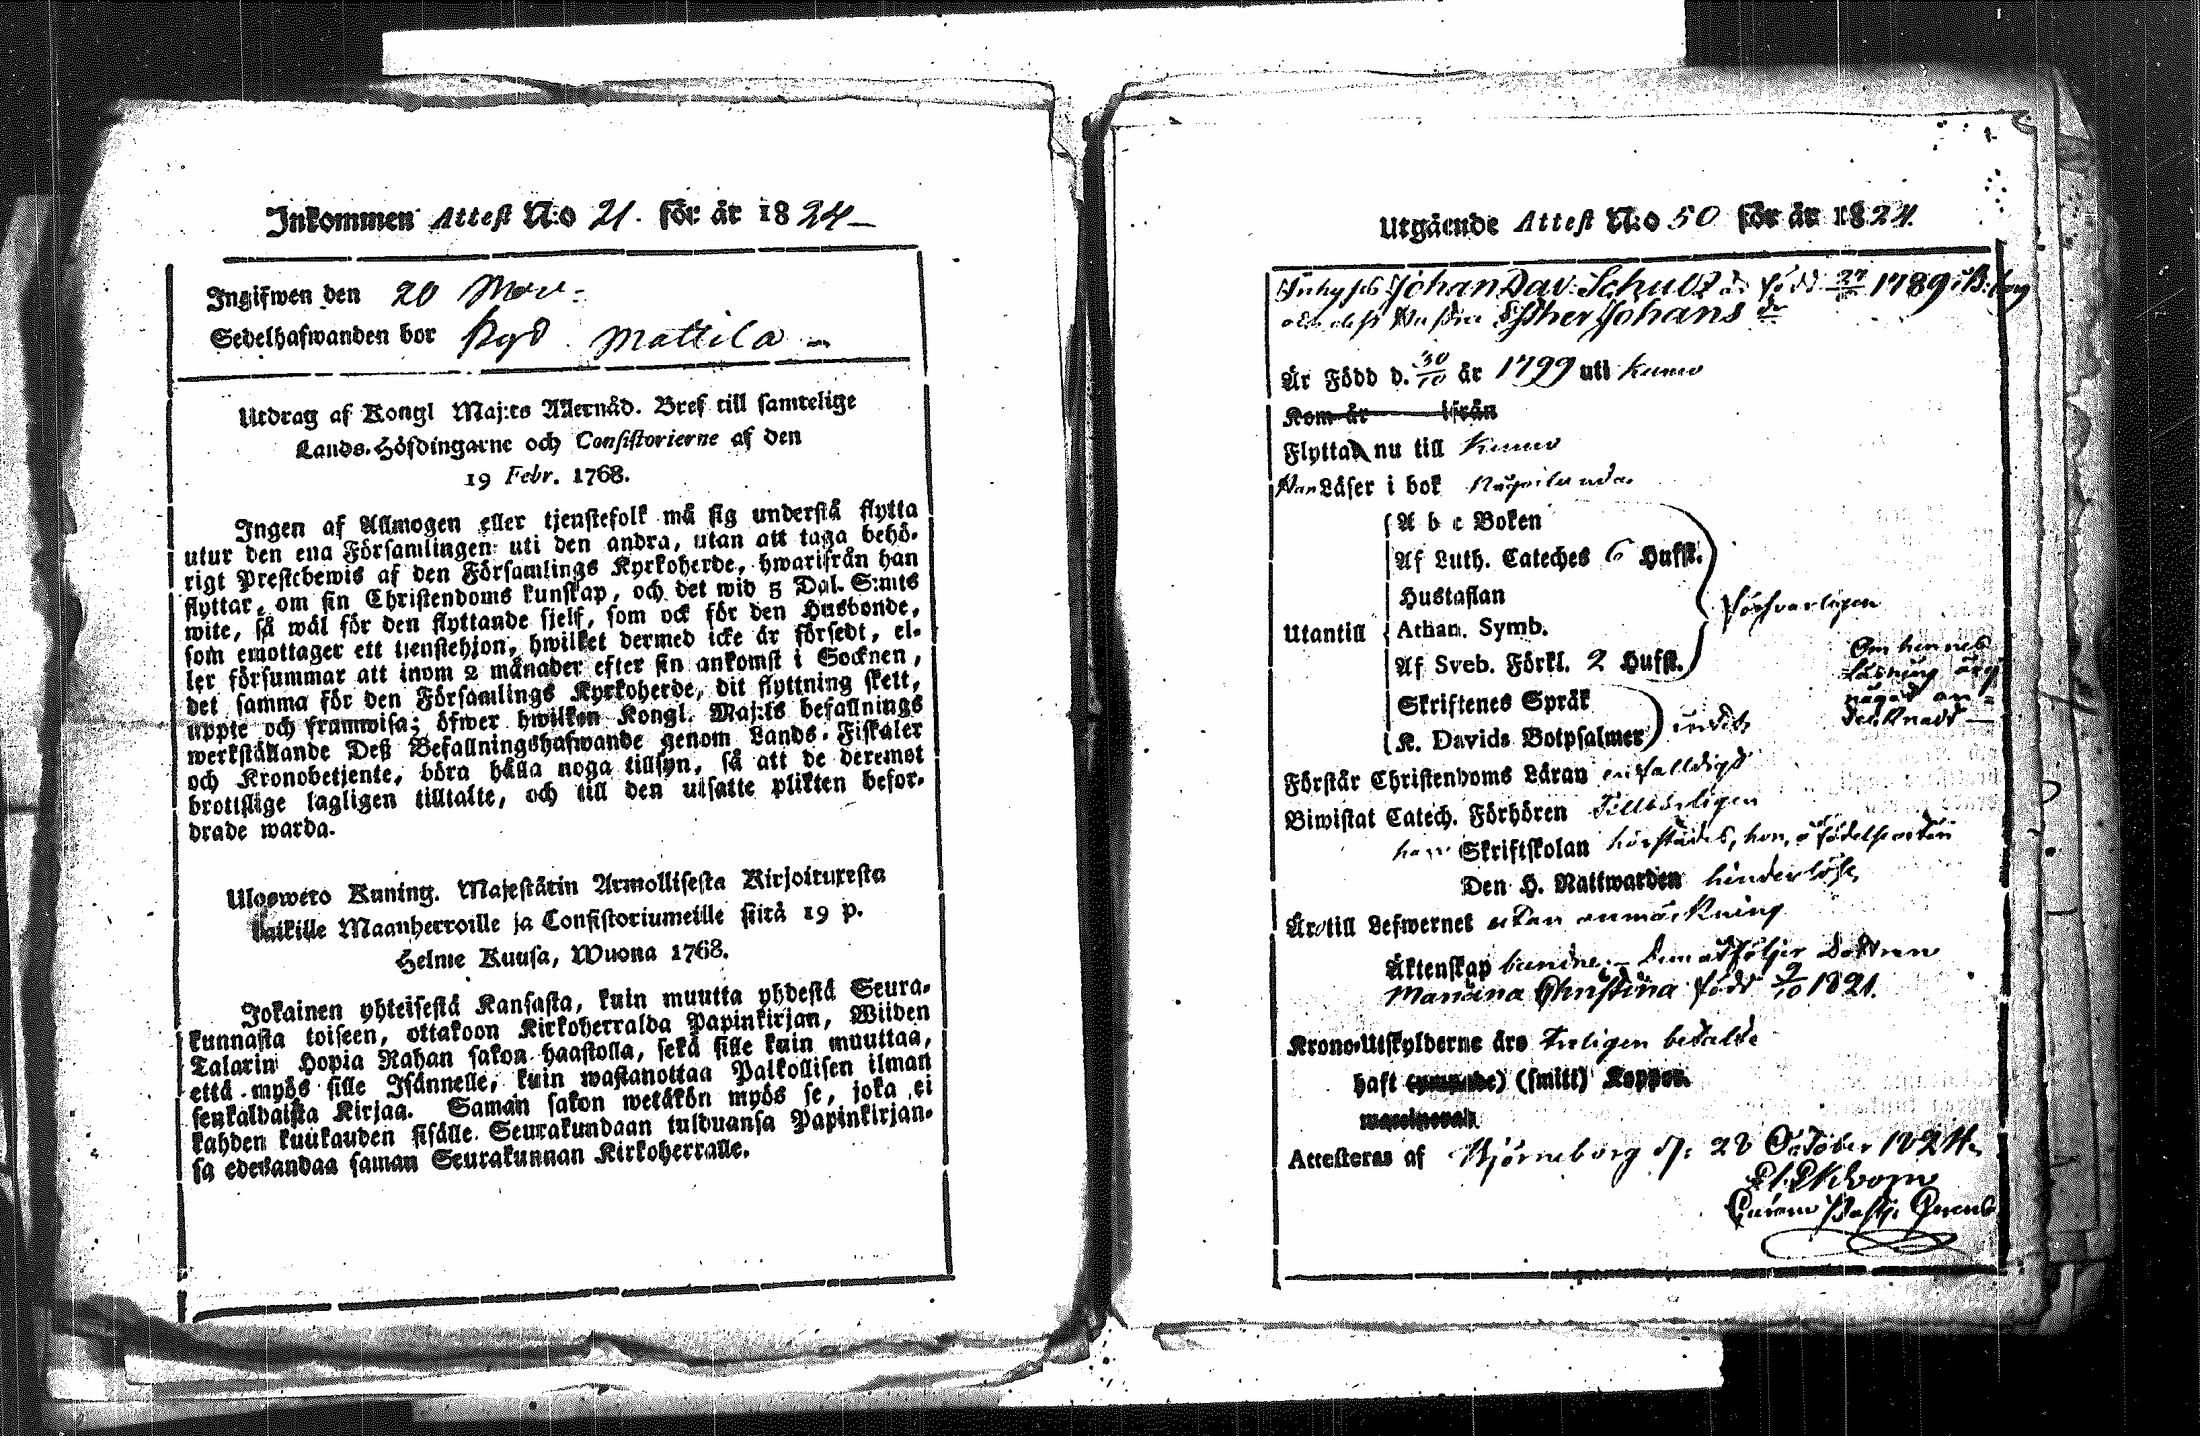 Inkommen Attest N:o 21. för år 1824 –
Ingifwen den 20 Nov:
Sedelhafwanden bor Ryd Mattila –
Utdrag af Kongl Maj:ts Allernåd. Bref till samtelige
Lands-Höfdingarne och Consistorierne af den
19 Febr. 1768.
Ingen af Allmogen eller tjenstefolk må sig understå flytta
utur den ena Församlingen uti den andra, utan att taga behö-
rigt Prestebewis af den Församlings Kyrkoherde, hwarifrån han
flyttar, om sin Christendoms kunskap, och det wid 5 Dal. S:mts
wite, så wäl för den flyttande sjelf, som ock för den Husbonde,
som emottager ett tjenstehjon, hwilket dermed icke är försedt, el-
ler försummar att inom 2 månader efter sin ankomst i Socknen,
det samma för den Församlings Kyrkoherde, dit flyttning skett,
uppte och framwisa; öfwer hwilken Kongl. Maj:ts befallnings
werkställande Deß Befallningshafwande genom Lands-Fiskaler
och Kronobetjente, böra hålla noga tillsyn, så att de deremot
brottslige lagligen tilltalte, och till den utsatte plikten befor-
drade warda.
Ulosweto Kuning. Majestätin Armollisesta Kirjoituxesta
kaikille Maanherroille ja Consistoriumeille siitä 19 p.
Helme Kuusa, Wuona 1768.
Jokainen yhteisestä Kansasta, kuin muutta yhdestä Seura-
kunnasta toiseen, ottakoon Kirkoherralda Papinkirjan, Wiiden
Talarin Hopia Rahan sakon haastolla, sekä sille kuin muuttaa,
että myös sille Isännelle, kuin wastanottaa Palkollisen ilman
senkaldaista Kirjaa. Saman sakon wetäkön myös se, joka ei
kahden kuukauden sisälle Seurakundaan tulduansa Papinkirjan-
sa edeskandaa saman Seurakunnan Kirkoherralle.
Utgående Attest N:o 50 för år 1824.
Inhyses Johan Dav: Schultz född 27 1789 i B:borg
och dess Hustru Esther Johans dr
Är Född d. 30/10 år 1799 uti Kumo
Kom år ifrån
Flytta nu till Kumo
Han Läser i bok någorlunda
Utantill
A b c Boken
Af Luth. Cateches 6 Hufst.
Hustaflan
Athan. Symb.
Af Sveb. Förkl. 2 Hufst.
försvarligen
Skriftenes Språk
K. Davids Botpsalmer
Om hennes
Läsning är ej
något an-
tecknadt –
Förstår Christendoms Läran enfaldigt
Biwistat Catech. Förhören Tillbörligen
han Skriftskolan härstädes, hon, å födelseorten
Den H. Nattwarden hinderlöst
Äro till Lefwernet utan anmärkning
Äktenskap bundne. – Dem åtföljer Dottren
Christina född 9/10 1821.
Krono-Utskylderne äro behörigen betalte
haft (smitt) Koppor.
Attesteras af Björneborg d: 28 October 1824.